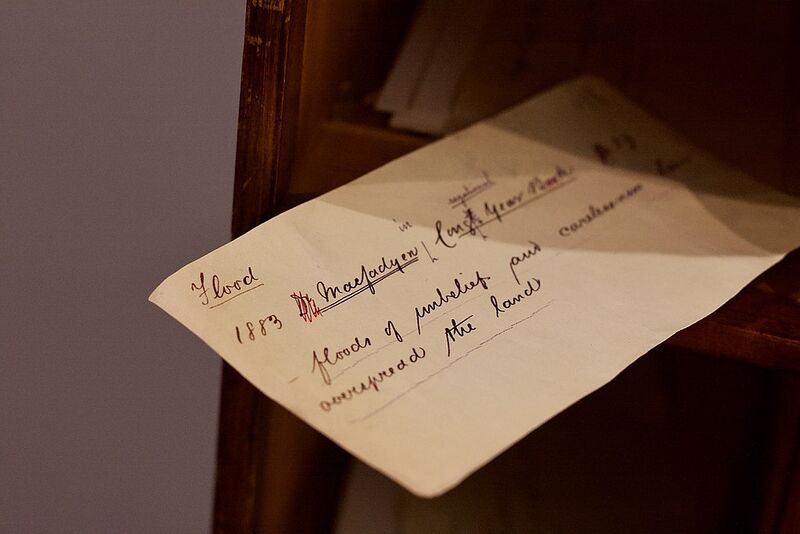 Flood
in
1883 Macfadyen Congl Year Book
floods of unbelief and carelessness
overspread the land